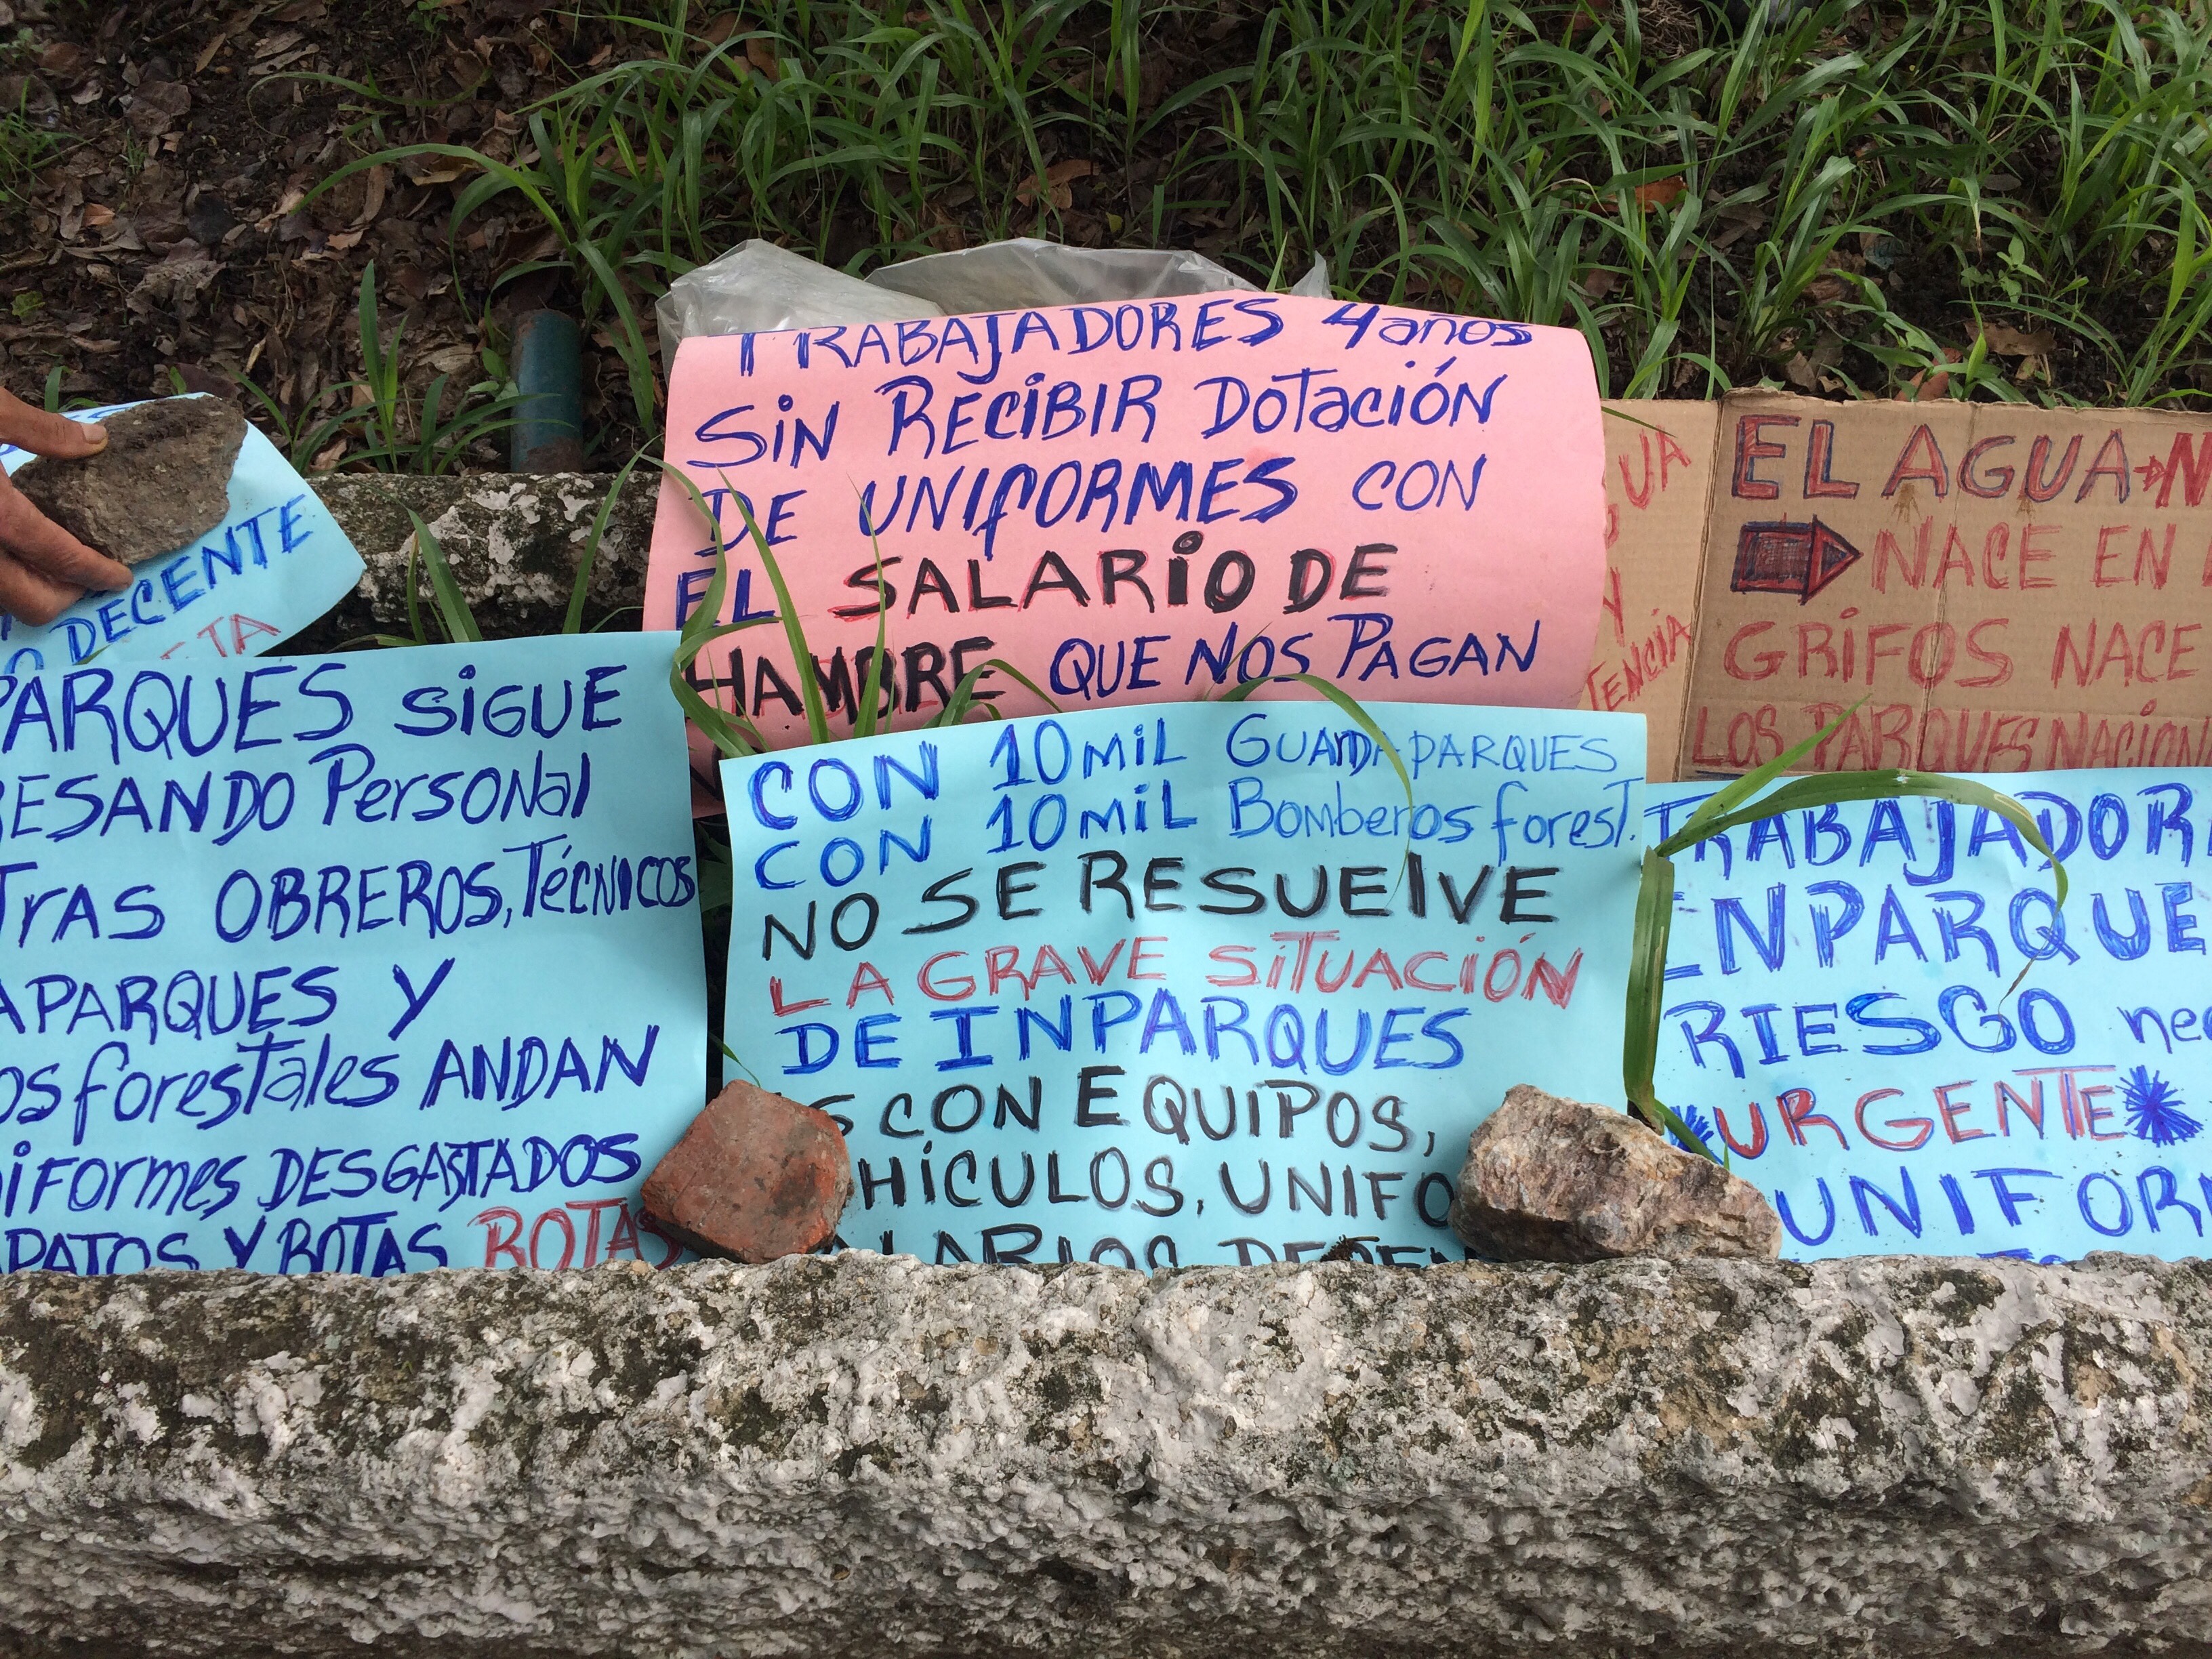 TRABAJADORES 4 años
SIN RECIBIR DOTACIÓN
DE UNIFORMES CON
EL SALARIO DE
HAMBRE QUE NOS PAGAN
DECENTE
PARQUES SIGUE
ESANDO Personal
Tras OBREROS, Técnicos
APARQUES Y
os forestales ANDAN
iFormes DESGASTADOS
PATOS Y BOTAS ROTAS
CON 10 MIL GUARDAPARQUES
CON 10 MIL Bomberos forest.
NO SE RESUELVE
LA GRAVE SITUACIÓN
DE INPARQUES
S CON EQUIPOS,
HÍCULOS, UNIFO
ALARIOS DECEN
UA
Y
TENCIA
EL AGUA N
NACE EN
GRIFOS NACE
LOS PARQUES NACION
TRABAJADOR
INPARQUE
RIESGO nec
URGENTE
UNIFOR